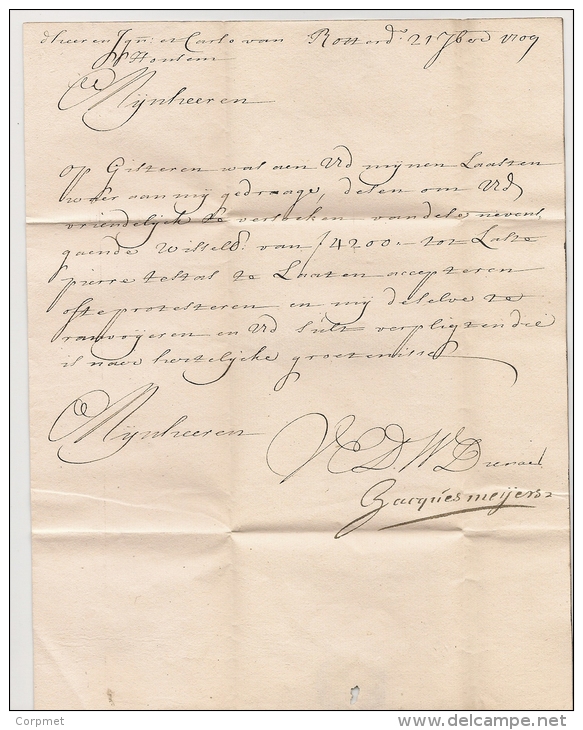 dheeren Jgn: et Carlo van Rotterd.^m 21 7bre 1709
Houtem
Mijnheeren
op Gisteren was aen Vld mijnen Laasten
waer aan mij gedraage, desen om Vld
vriendelijck te versoeken van dese nevens
gaende wissel van ƒ4200:- tot Laste
pierre testas te Laaten accepteren
ofte protesteren en mij deselve te
ranvoijeren en Vld sult verpligten die
is naer hertelijcke groetenisse
Mijnheeren
VEDWDienaer
Jacques meijers
Corpmet
www.delcampe.net